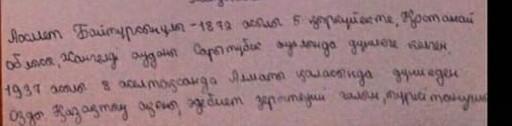 Ахмет Байтұрсынұлы - 1872 жылы 5 қыркүйекте, Қостанай
облысы, Жангелді ауданы Сарытүбек ауылында дүниеге келген.
1937 жылы 8 желтоқсанда Алматы қаласында дүниеден
озды Қазақтың ақыны, әдебиет зерттеуші ғалым, түркітанушы